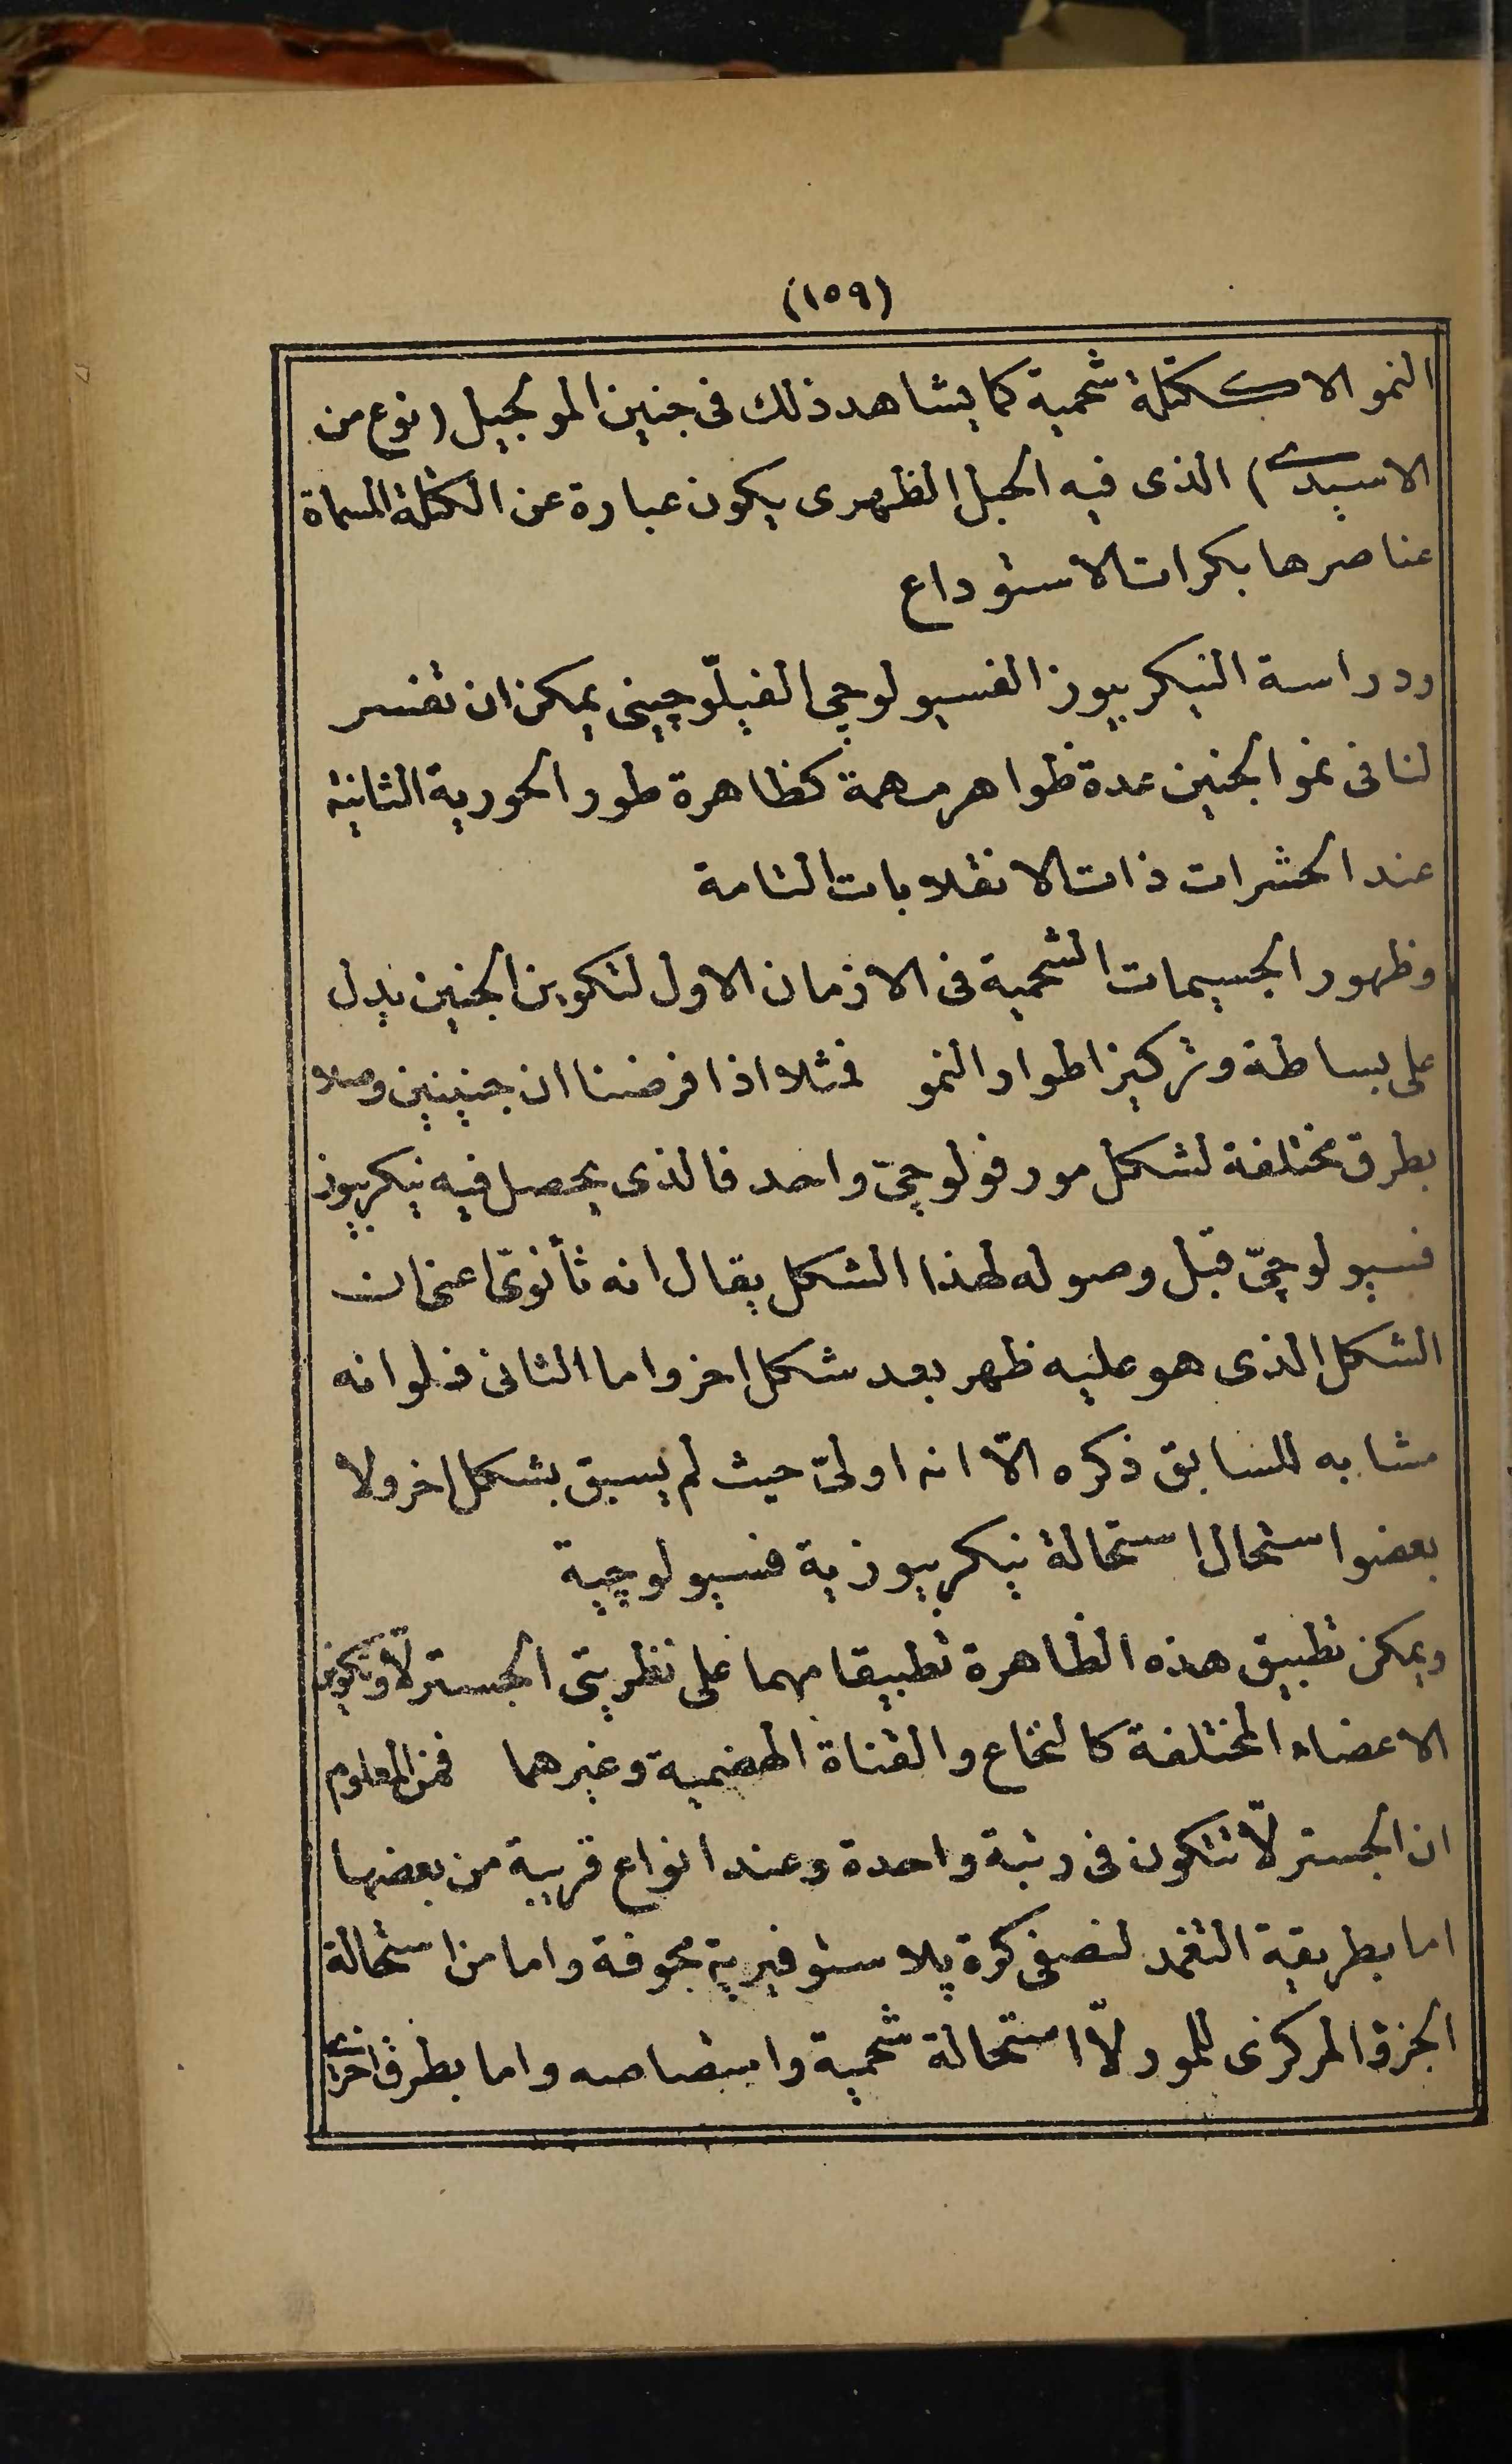 (١٥٩)
النمو الا ككتلة شحمية كما يشاهد ذلك فى جنين المولجيل (نوع من
الاسيدى) الذى فيه الحبل الظهرى يكون عبارة عن الكتلة المسماة
عناصرها بكرات الاستوداع
ودراسة النيكربيوز الفسيولوچى الفيلّوچينى يمكن ان تفسر
لنا فى نمو الجنين عدة ظواهر مهمة كظاهرة طور الحورية الثانية
عند الحشرات ذات الانقلابات التامة
وظهور الجسيمات الشحمية فى الازمان الاول لتكوين الجنين يدل
على بساطة وتركيز اطوار النمو فمثلا اذا فرضنا ان جنينين وصلا
بطرق مختلفة لشكل مورفولوچىّ واحد فالذى يحصل فيه نيكربيوز
فسيولوچىّ قبل وصوله لهذا الشكل يقال انه ثأنوىّ اعنى ان
الشكل الذى هو عليه ظهر بعد شكل اخر واما الثانى فلو انه
مشابه للسابق ذكره الّا انه اولىّ حيث لم يسبق بشكل اخر ولا
بعضو استحال استحالة نيكربيوزية فسيولوچية
ويمكن تطبيق هذه الظاهرة تطبيقا مهما على نظريتى الجسترلّا وتكوين
الاعضاء المختلفة كالنخاع والقناة الهضمية وغيرهما فمن المعلوم
ان الجسترلّا تتكون فى رتبة واحدة وعند انواع قريبة من بعضها
اما بطريقة التغمد لنصفى كرة پلاستوفيرية مجوفة واما من استحالة
الجزؤ المركزى للمورلّا استحالة شحمية وامتصاصه واما بطرق اخرى